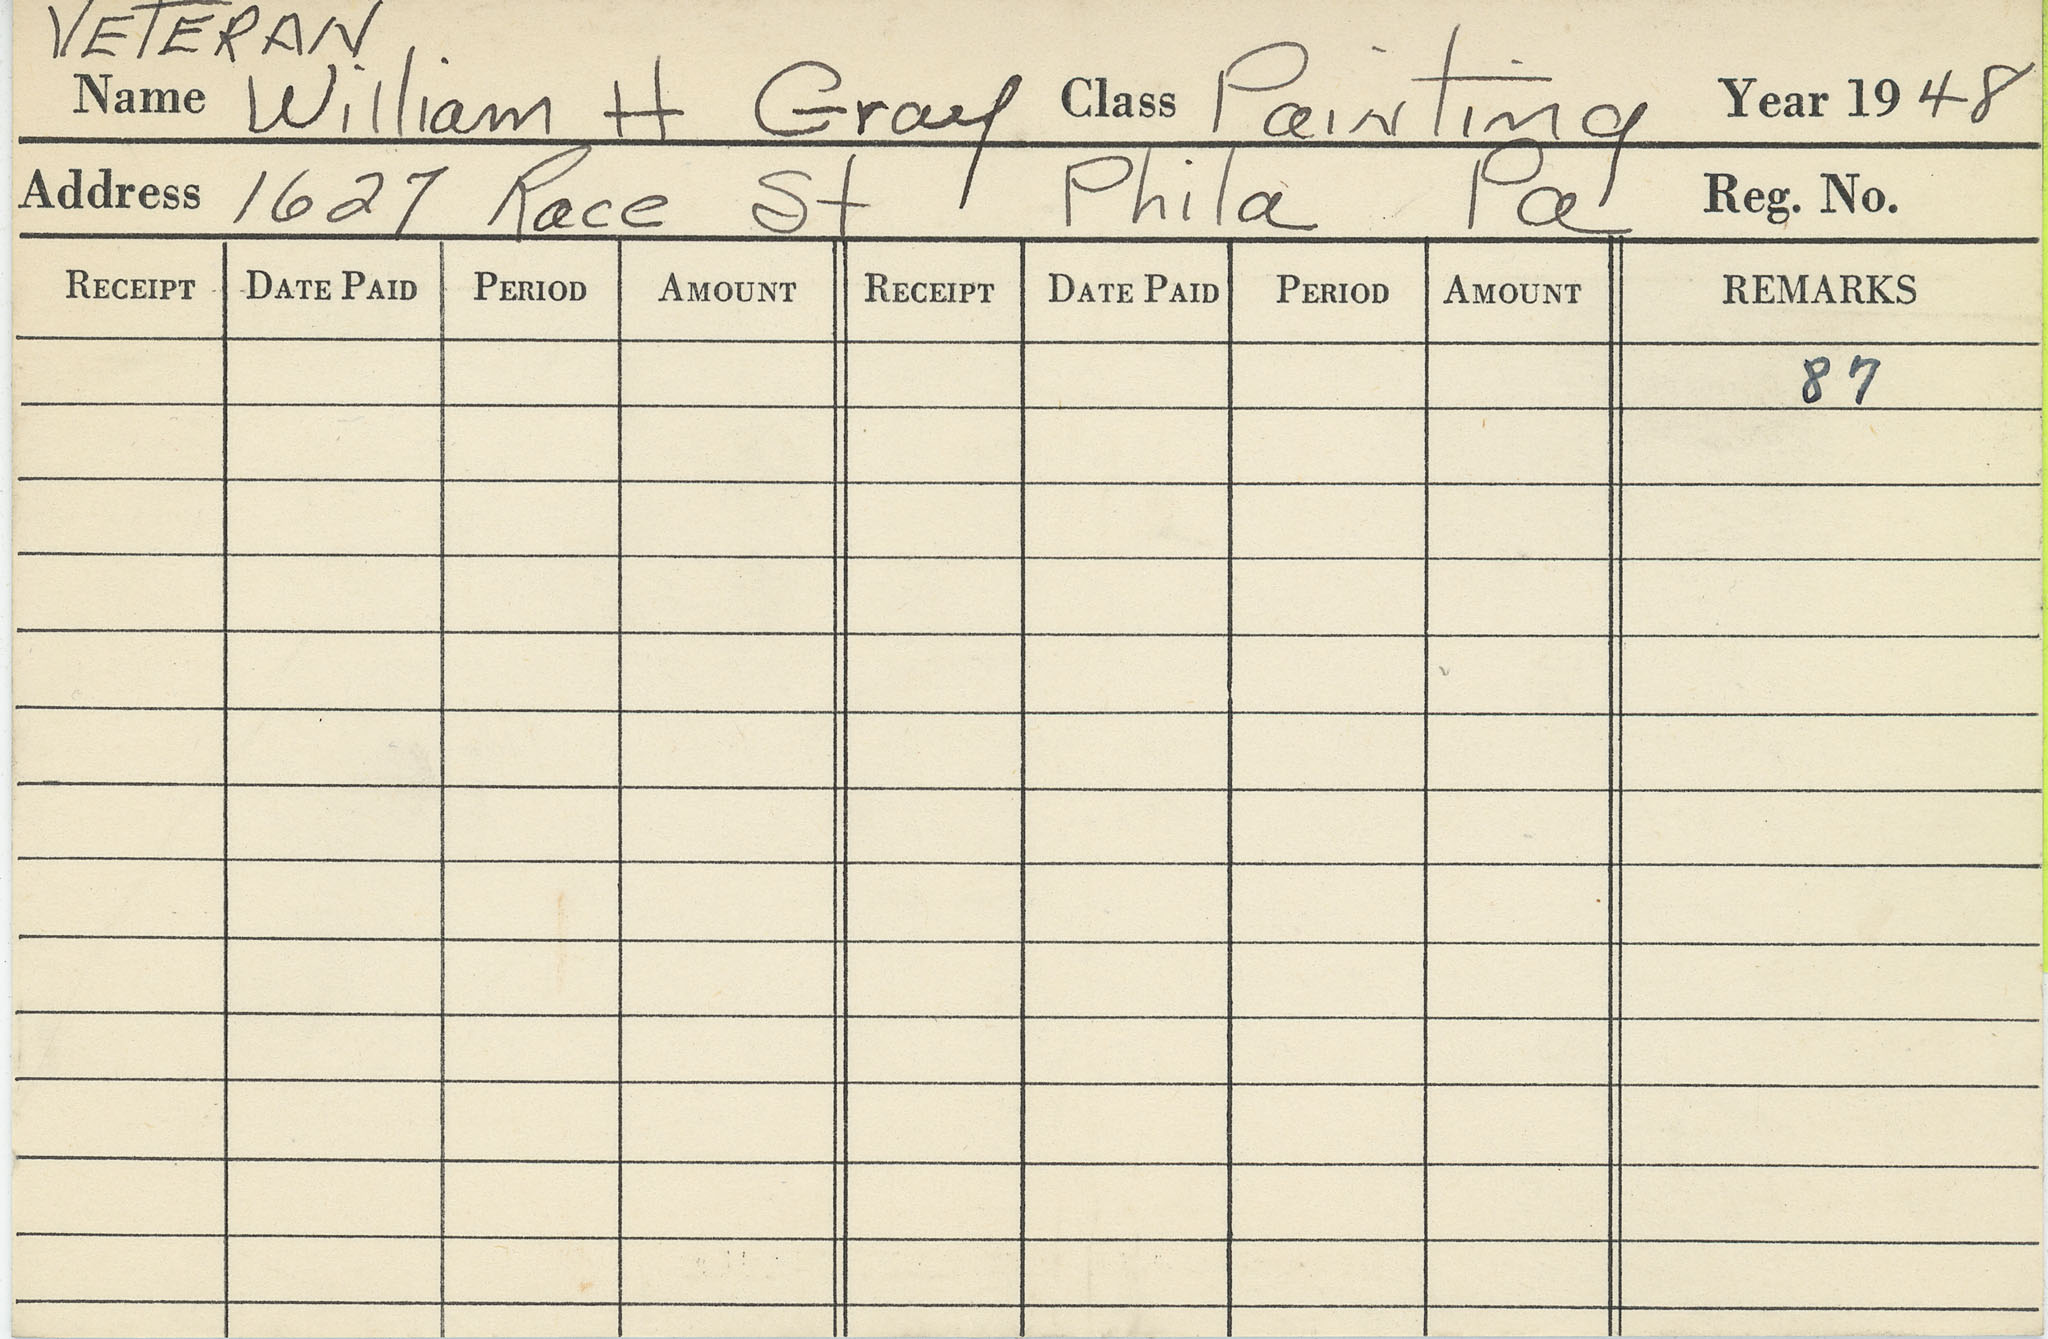 VETERAN
Name William H Gray Class Painting Year 1948
Address 1627 Race St Phila Pa Reg. No.
RECEIPT DATE PAID PERIOD AMOUNT RECEIPT DATE PAID PERIOD AMOUNT REMARKS
87